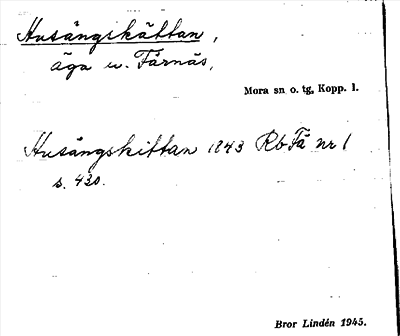 Husängskättan,
äga u. Färnäs,
Mora sn o. tg, Kopp. l.
Husängskittan 1843 Rb Fä nr 1
s. 430.
Bror Lindén 1945.